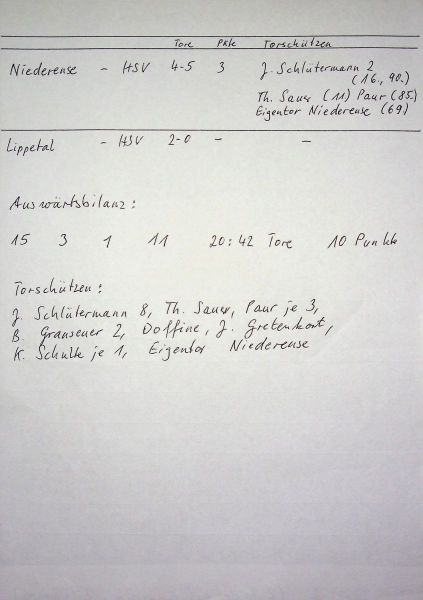 Tore Pkte Torschützen
Niederense - HSV 4-5 3 J. Schlütermann 2
(16., 90.)
Th. Sauer (11) Paur (85.)
Eigentor Niederense (69.)
Lippetal - HSV 2-0 - -
Auswärtsbilanz:
15 3 1 11 20:42 Tore 10 Punkte
Torschützen:
J. Schlütermann 8, Th. Sauer, Paur je 3,
B. Granseuer 2, Doffine, J. Gretenkort,
K. Schulte je 1, Eigentor Niederense